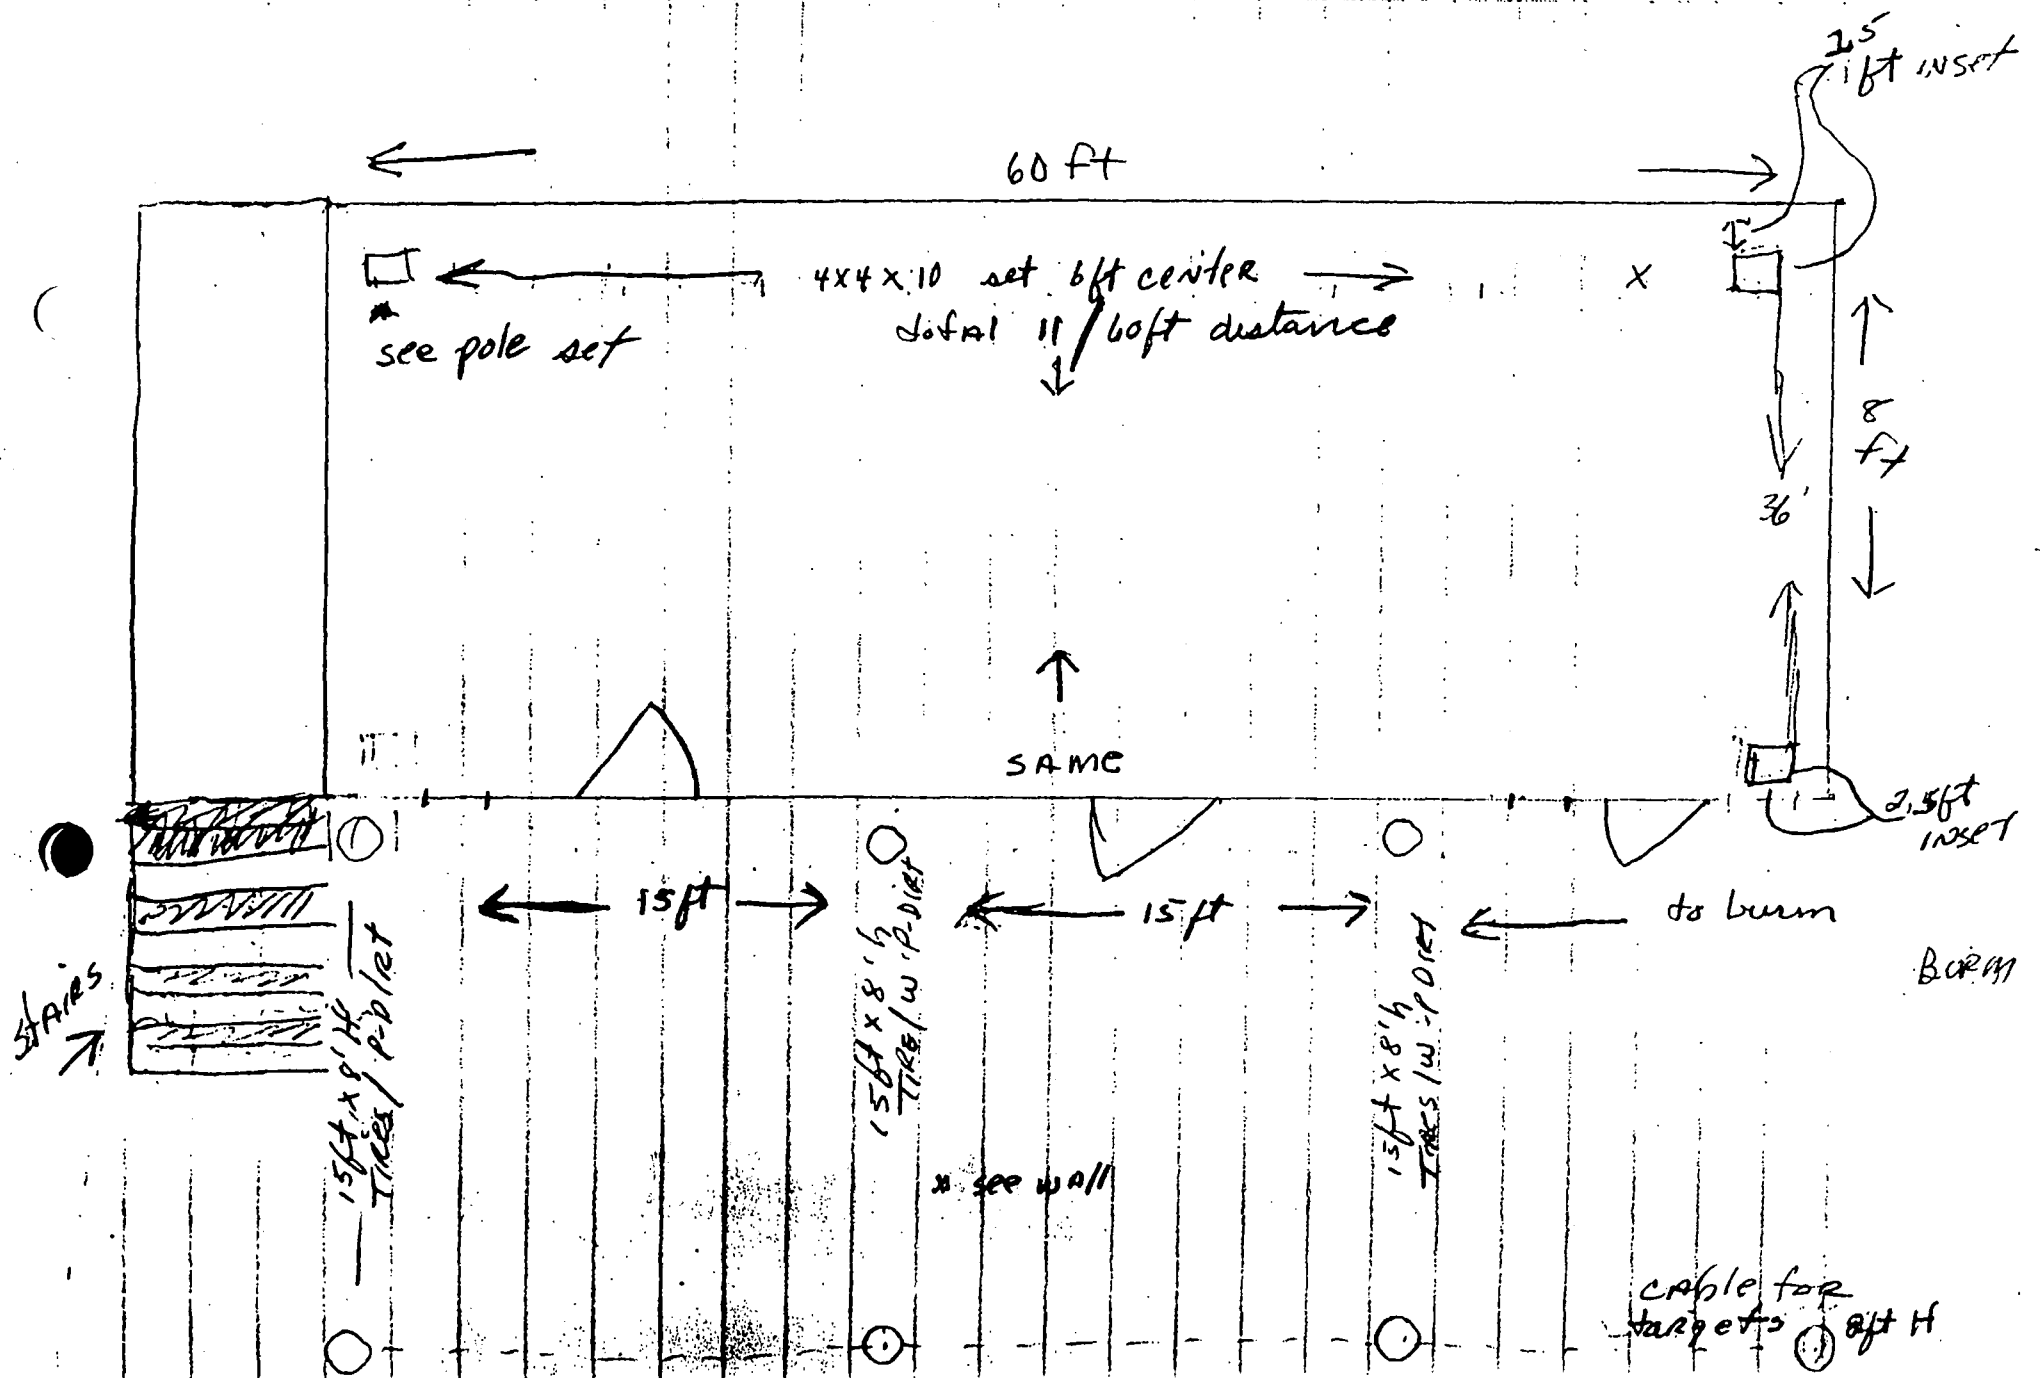 2.5
1ft INSET
60 ft
4x4x10 set 6ft center
total 11 / 60ft distance
x
* see pole set
8
ft
36'
SAME
2.5ft
INSET
15ft
15ft
to burm
BURM
STAIRS
15ft x 8' H
TIRES/ P-DIRT
15ft x 8'h
TIRE/W P-DIRT
15ft x 8'h
TIRES/W-P DIRT
* see wall
cable for
targets 8ft H